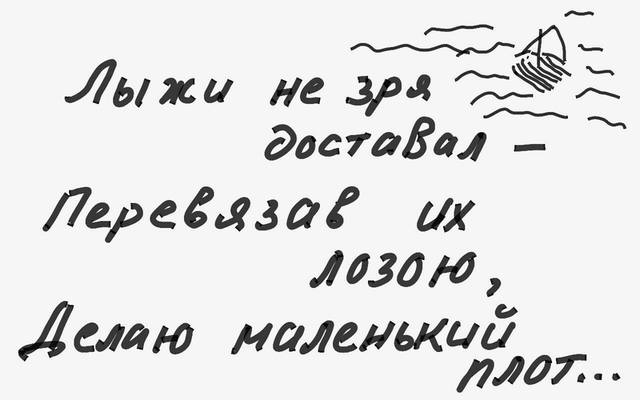 Лыжи не зря
доставал –
Перевязав их
лозою,
Делаю маленький
плот...